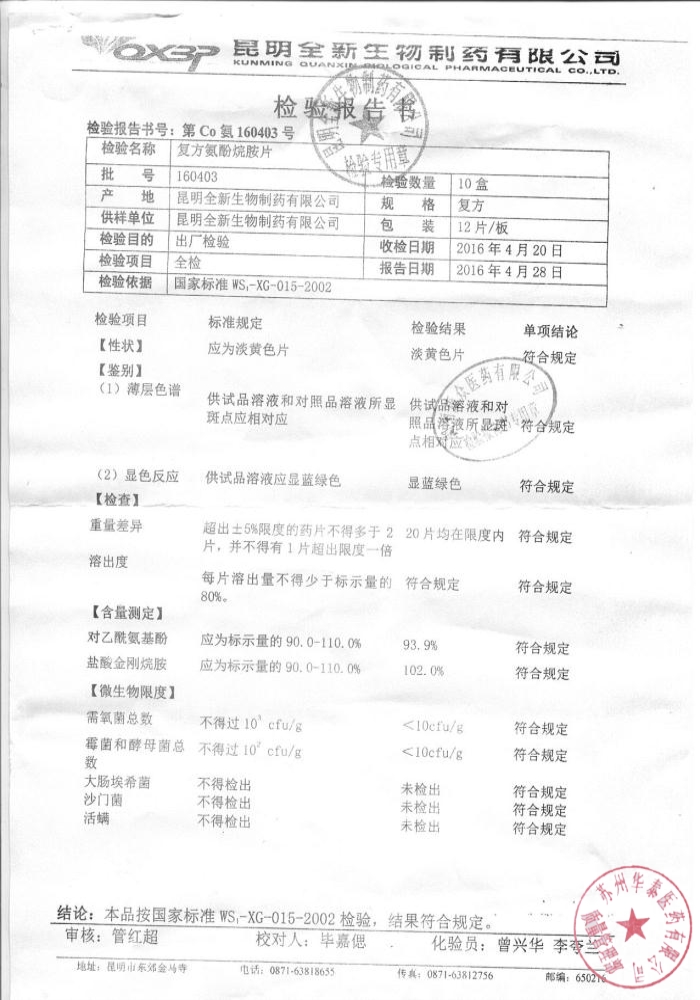 QX3P 昆明全新生物制药有限公司
KUNMING QUANXIN BIOLOGICAL PHARMACEUTICAL CO.,LTD.
检验报告书
昆明全新生物制药有限公司
检验专用章
检验报告书号：第 Co 氨 160403 号
检验名称 复方氨酚烷胺片
批 号 160403 检验数量 10 盒
产 地 昆明全新生物制药有限公司 规 格 复方
供样单位 昆明全新生物制药有限公司 包 装 12 片/板
检验目的 出厂检验 收检日期 2016 年 4 月 20 日
检验项目 全检 报告日期 2016 年 4 月 28 日
检验依据 国家标准 WS₁-XG-015-2002
检验项目 标准规定 检验结果 单项结论
【性状】 应为淡黄色片 淡黄色片 符合规定
【鉴别】
（1）薄层色谱 供试品溶液和对照品溶液所显 供试品溶液和对
斑点应相对应 照品溶液所显斑 符合规定
点相对应
医药有限公司
（2）显色反应 供试品溶液应显蓝绿色 显蓝绿色 符合规定
【检查】
重量差异 超出±5%限度的药片不得多于 2 20 片均在限度内 符合规定
片，并不得有 1 片超出限度一倍
溶出度
每片溶出量不得少于标示量的 符合规定 符合规定
80%。
【含量测定】
对乙酰氨基酚 应为标示量的 90.0-110.0% 93.9% 符合规定
盐酸金刚烷胺 应为标示量的 90.0-110.0% 102.0% 符合规定
【微生物限度】
需氧菌总数 不得过 10³ cfu/g ＜10cfu/g 符合规定
霉菌和酵母菌总 不得过 10² cfu/g ＜10cfu/g 符合规定
数
大肠埃希菌 不得检出 未检出 符合规定
沙门菌 不得检出 未检出 符合规定
活螨 不得检出 未检出 符合规定
结论：本品按国家标准 WS₁-XG-015-2002 检验，结果符合规定。
审核：管红超 校对人：毕嘉偲 化验员：曾兴华 李苓兰
苏州华泰医药有限公司
地址：昆明市东郊金马寺 电话：0871-63818655 传真：0871-63812756 邮编：650216